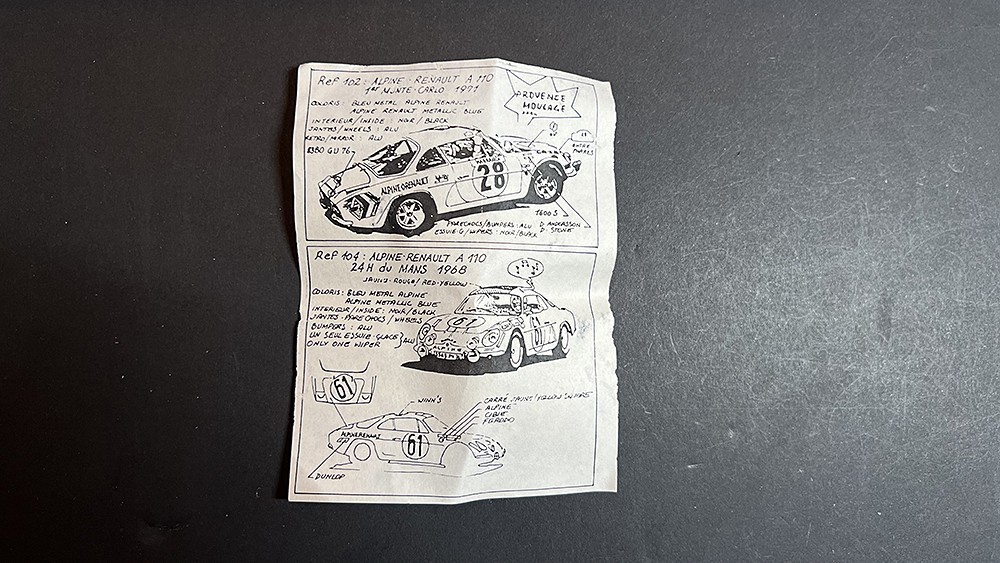 Ref 102 : ALPINE-RENAULT A 110
1er MONTE-CARLO 1971
PROVENCE
MOULAGE
COLORIS : BLEU METAL ALPINE RENAULT
ALPINE RENAULT METALLIC BLUE
INTERIEUR/INSIDE : NOIR / BLACK
JANTES/WHEELS : ALU
RETRO/MIRROR : ALU
ENTRE
PHARES
GU 76
28
ALPINE RENAULT
1600 S
PARECHOCS/BUMPERS : ALU
D. ANDERSSON
ESSUIE-G/WIPERS : NOIR/BLACK
D. STONE
Ref 104 : ALPINE-RENAULT A 110
24H du MANS 1968
JAUNE-ROUGE/RED-YELLOW
COLORIS : BLEU METAL ALPINE
ALPINE METALLIC BLUE
INTERIEUR/INSIDE : NOIR/BLACK
JANTES-PARECHOCS/WHEELS
BUMPERS : ALU
UN SEUL ESSUIE-GLACE } ALU
ONLY ONE WIPER
61
61
ALPINE
61
WINN'S
CARRÉ JAUNE/YELLOW
ALPINE
CIBIE
FERODO
ALPINE RENAULT
61
DUNLOP